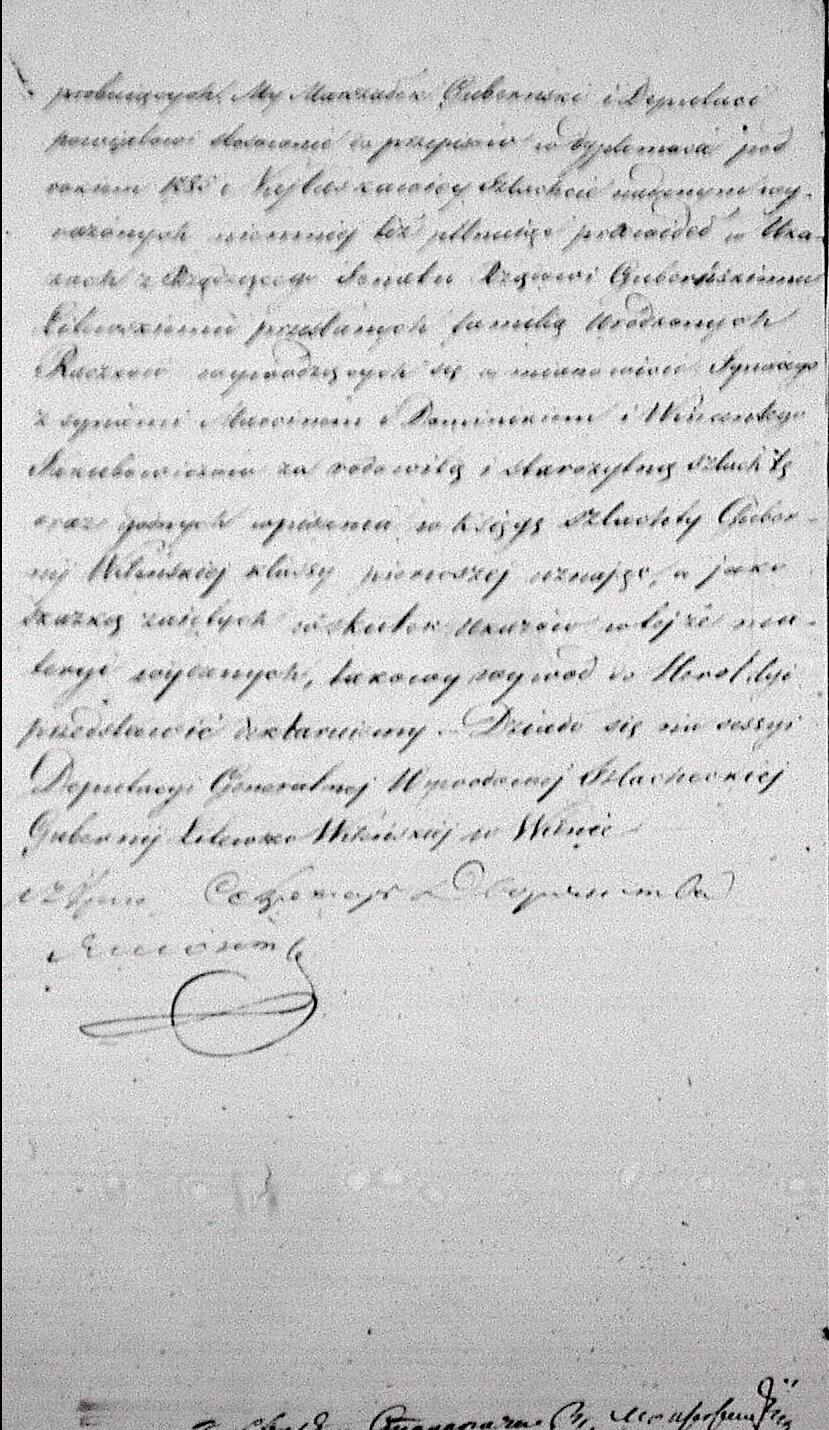 probuiących, My Marszałek Guberński i Deputaci
powiatowi stosownie do przepisów w dyplomacie pod
rokiem 1785 Nayłaskawiey Szlachcie nadanym wy-
rażonych niemniej też pilnuiąc prawideł w Uka-
zach z Rządzącego Senatu Rządowi Guberńskiemu
Litewskiemu przesłanych familią Urodzonych
Raczków wywodzących się a mianowicie Ignacego
z synami Marcinem i Dominikiem i Wincentego
Jakubowiczów za rodowitą i starożytną szlachtę
oraz godnych wpisania w księgę szlachty Guber-
nij Wileńskiej klassy pierwszej uznając, a jako
skazką zaiętych w skutek ukazów w tejże ma-
teryi wydanych, takowy wywod do Heroldyi
przedstawić deklaruiemy. Działo się na sessyi
Deputacyi Generalnej Wywodowej Szlacheckiej
Gubernij Litewsko Wileńskiej w Wilnie
Секретарь